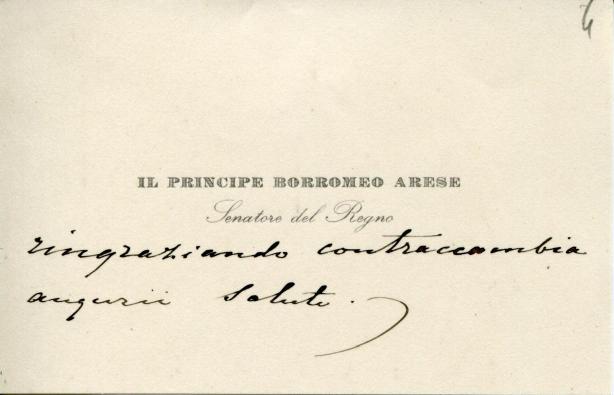 4
IL PRINCIPE BORROMEO ARESE
Senatore del Regno
ringraziando contraccambia
augurii saluti.